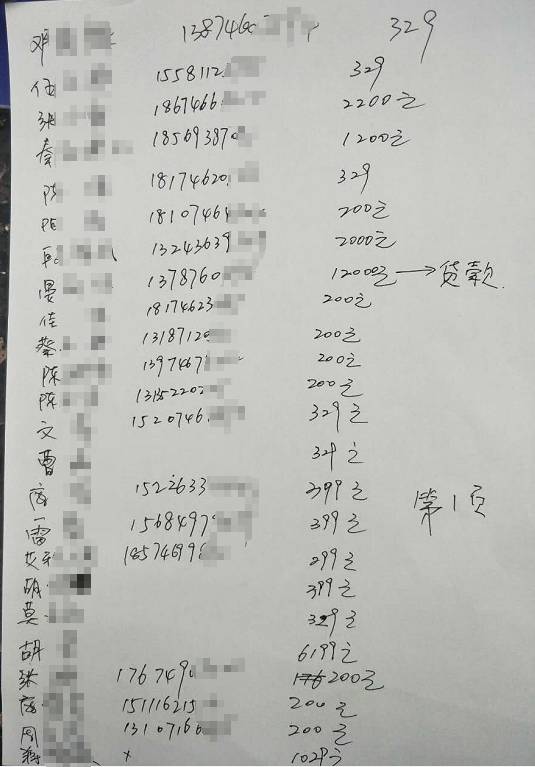 邓 1387460 329
伍 1558112 329
张 1867466 2200元
秦 18569387 1200元
陈 18174620 329
陈 18107464 200元
13243639 2000元
1378760 12000元→贷款
佳 18174623 200元
蔡 1318712 200元
陈 1397467 200元
陈 200元
文 1520746 329元
曹 329元
1522633 399元
雷 1568497 399元
1857469 299元
胡 399元
莫 329元
胡 6199元
张 1767490 200元
15111621 200元
周 1310716 200元
蒋 x 1029元
第1页